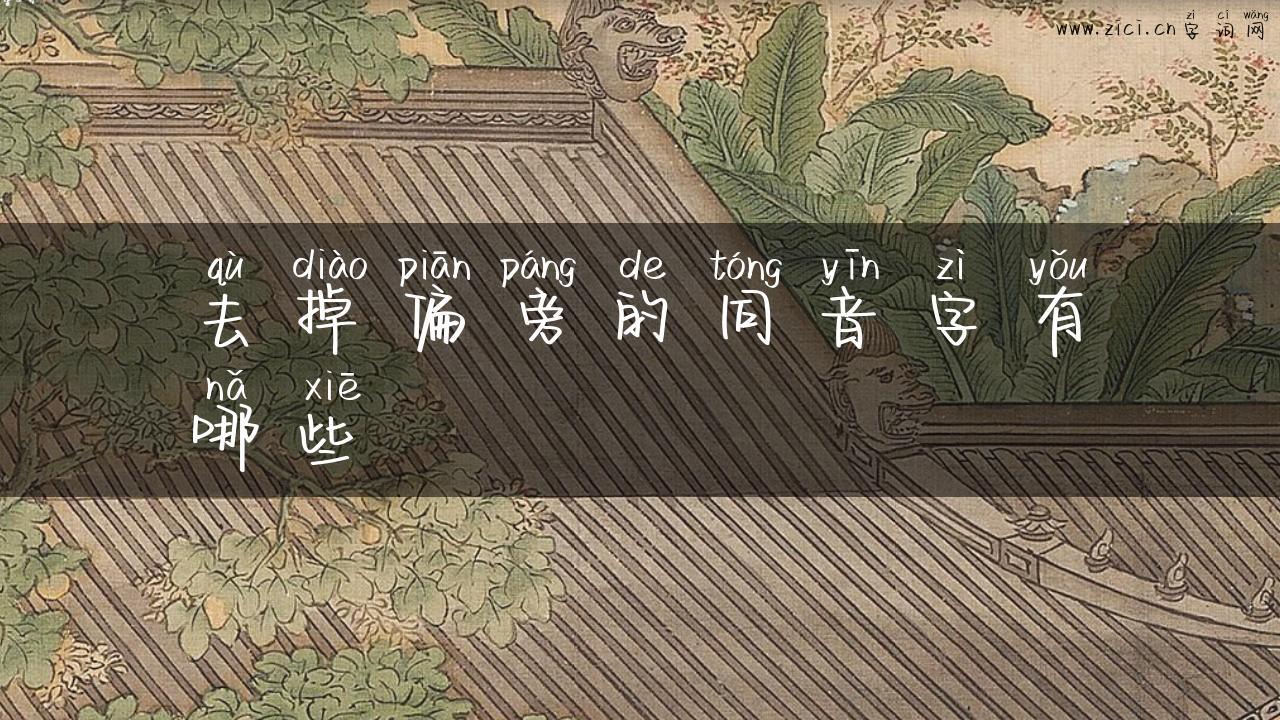 zì cí wǎng
www.zici.cn 字 词 网
qù diào piān páng de tóng yīn zì yǒu
去 掉 偏 旁 的 同 音 字 有
nǎ xiē
哪 些